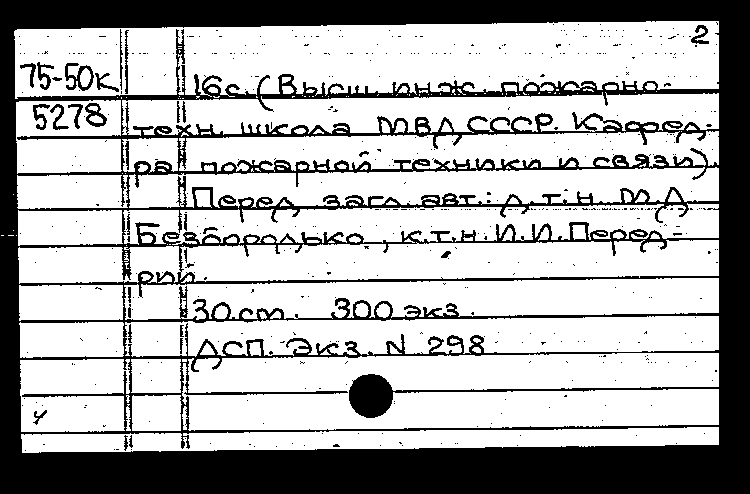 2
75-50к 16с. (Высш. инж. пожарно-
5278 техн. школа МВД СССР. Кафед-
ра пожарной техники и связи).
Перед загл. авт.: д.т.н. М.Д.
Безбородько, к.т.н. И.И. Перед-
рий.
30 cm. 300 экз.
ДСП. Экз. N 298.